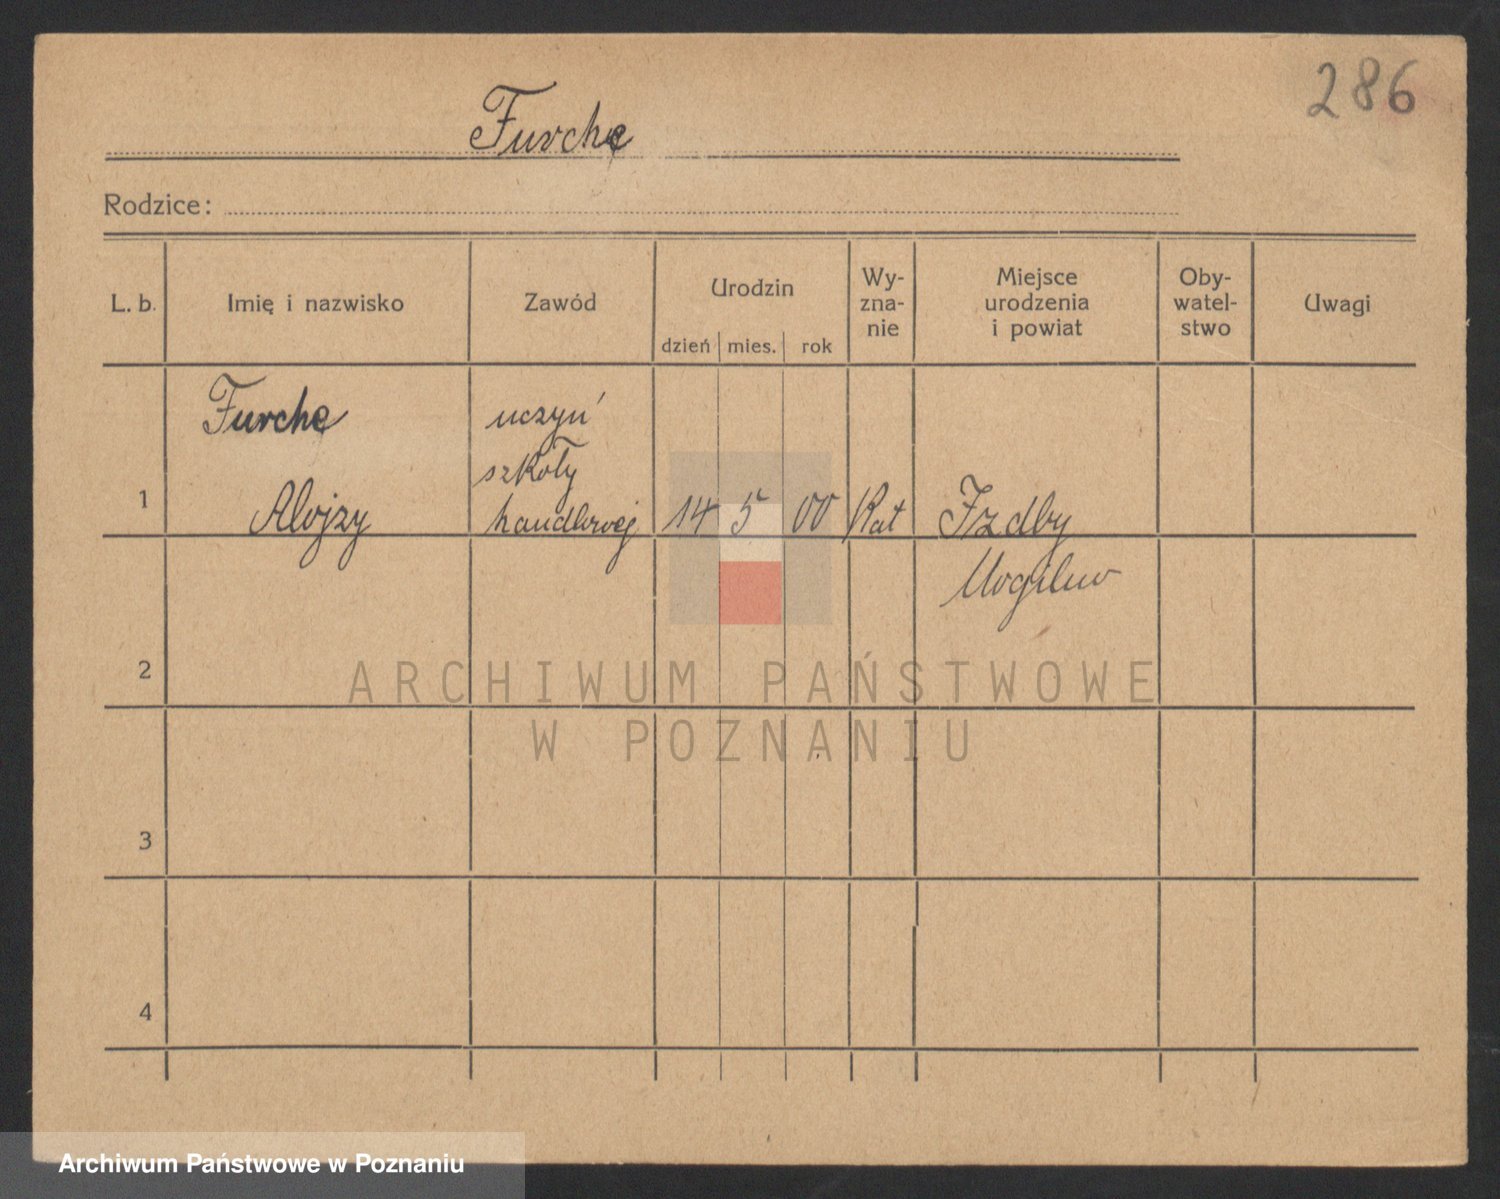 286
Furche
Rodzice:
L. b. Imię i nazwisko Zawód Urodzin dzień mies. rok Wy-zna-nie Miejsce urodzenia i powiat Oby-watel-stwo Uwagi
Furche uczyń
szkoły
1 Alojzy handlowej 14 5 00 Kat Izdby
Mogilno
2
ARCHIWUM PAŃSTWOWE
W POZNANIU
3
4
Archiwum Państwowe w Poznaniu